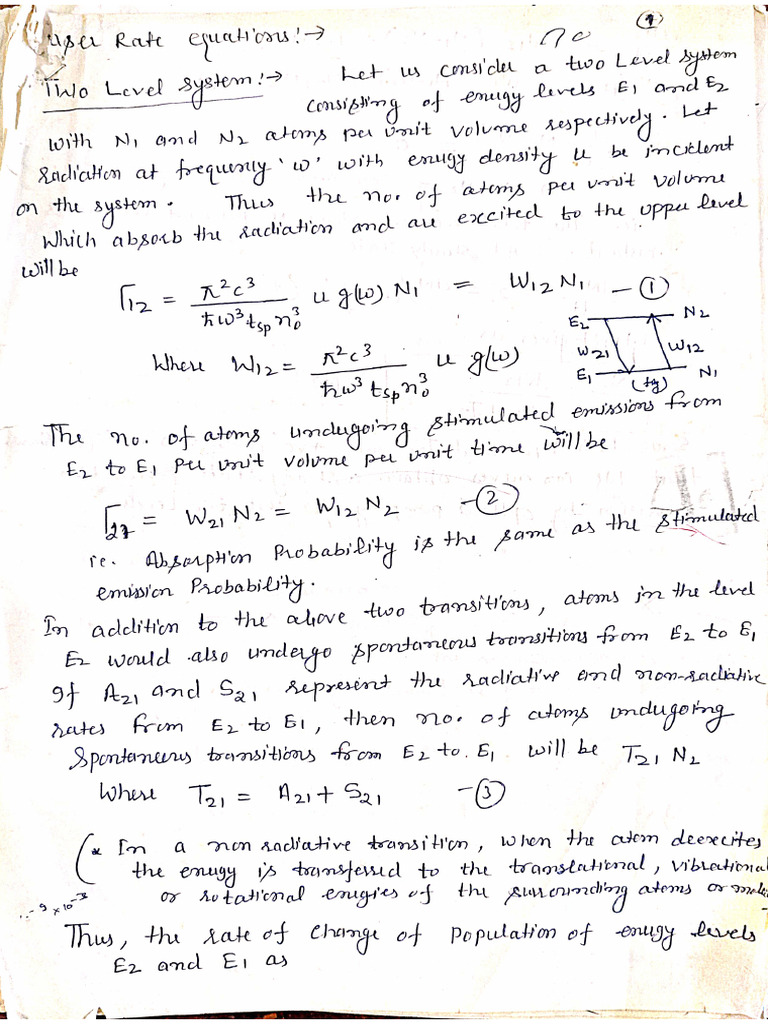 ①
Laser Rate equations:→
Two Level system:→ Let us consider a two Level system
consisting of energy levels E1 and E2
with N1 and N2 atoms per unit volume respectively. Let
radiation at frequency 'ω' with energy density u be incident
on the system. Thus the no. of atoms per unit volume
which absorb the radiation and are excited to the upper level
will be
Γ12 = π²c³ / ħω³tsp n₀³ u g(ω) N1 = W12 N1 — ①
E2 N2
Where W12 = π²c³ / ħω³ tsp n₀³ u g(ω)
W21 W12
E1 N1
The no. of atoms undergoing stimulated emissions from
E2 to E1 per unit volume per unit time will be
Γ21 = W21 N2 = W12 N2 — ②
ie. Absorption Probability is the same as the stimulated
emission Probability.
In addition to the above two transitions, atoms in the level
E2 would also undergo spontaneous transitions from E2 to E1
If A21 and S21 represent the radiative and non-radiative
rates from E2 to E1, then no. of atoms undergoing
spontaneous transitions from E2 to E1 will be T21 N2
Where T21 = A21 + S21 — ③
(* In a non radiative transition, when the atom deexcites
the energy is transferred to the translational, vibrational
or rotational energies of the surrounding atoms or
Thus, the rate of change of population of energy levels
E2 and E1 as